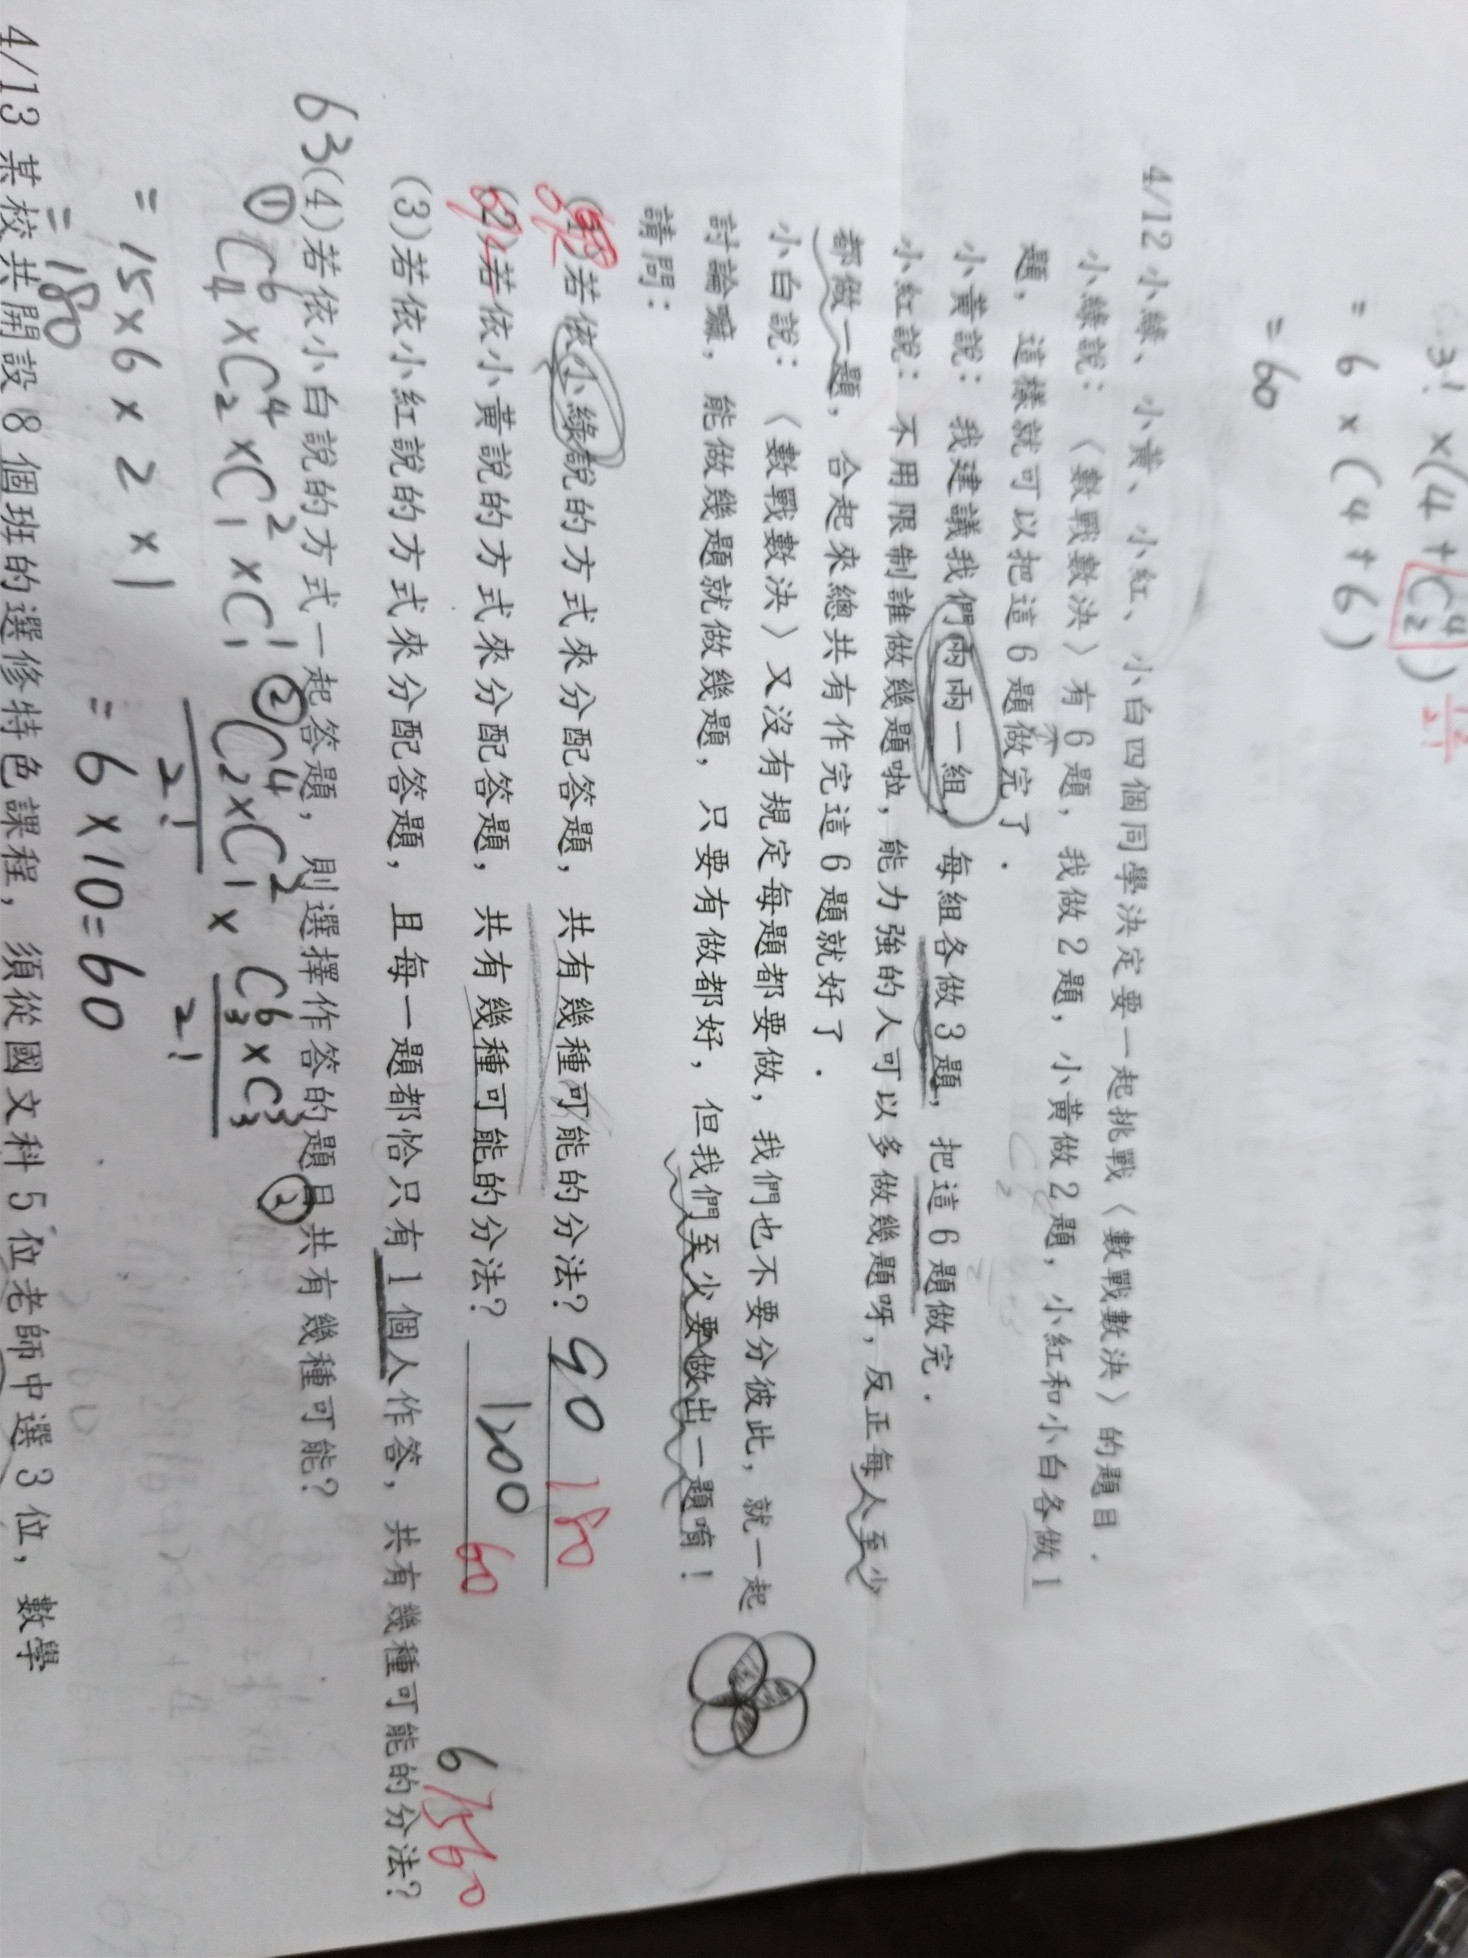 3! × (4 + C⁴₂)
= 6 × (4 + 6)
= 60
4/12 小綠、小黃、小紅、小白四個同學決定要一起挑戰〈數戰數決〉的題目.
小綠說：〈數戰數決〉有6題，我做2題，小黃做2題，小紅和小白各做1
題，這樣就可以把這6題做完了.
小黃說：我建議我們兩兩一組，每組各做3題，把這6題做完.
小紅說：不用限制誰做幾題啦，能力強的人可以多做幾題呀，反正每人至少
都做一題，合起來總共有作完這6題就好了.
小白說：〈數戰數決〉又沒有規定每題都要做，我們也不要分彼此，就一起
討論嘛，能做幾題就做幾題，只要有做都好，但我們至少要做出一題唷！
請問：
(1)若依小綠說的方式來分配答題，共有幾種可能的分法？ 90 180
(2)若依小黃說的方式來分配答題，共有幾種可能的分法？ 1200 60
(3)若依小紅說的方式來分配答題，且每一題都恰只有1個人作答，共有幾種可能的分法？ 6 1560
63 (4)若依小白說的方式一起答題，則選擇作答的題目共有幾種可能？
① C⁶₄ × C⁴₂ × C²₁ × C¹₁ ② C⁴₂ × C²₁ / 2! × C⁶₃ × C³₃ / 2!
= 15 × 6 × 2 × 1
= 180
= 6 × 10 = 60
4/13 某校共開設8個班的選修特色課程，須從國文科5位老師中選3位，數學